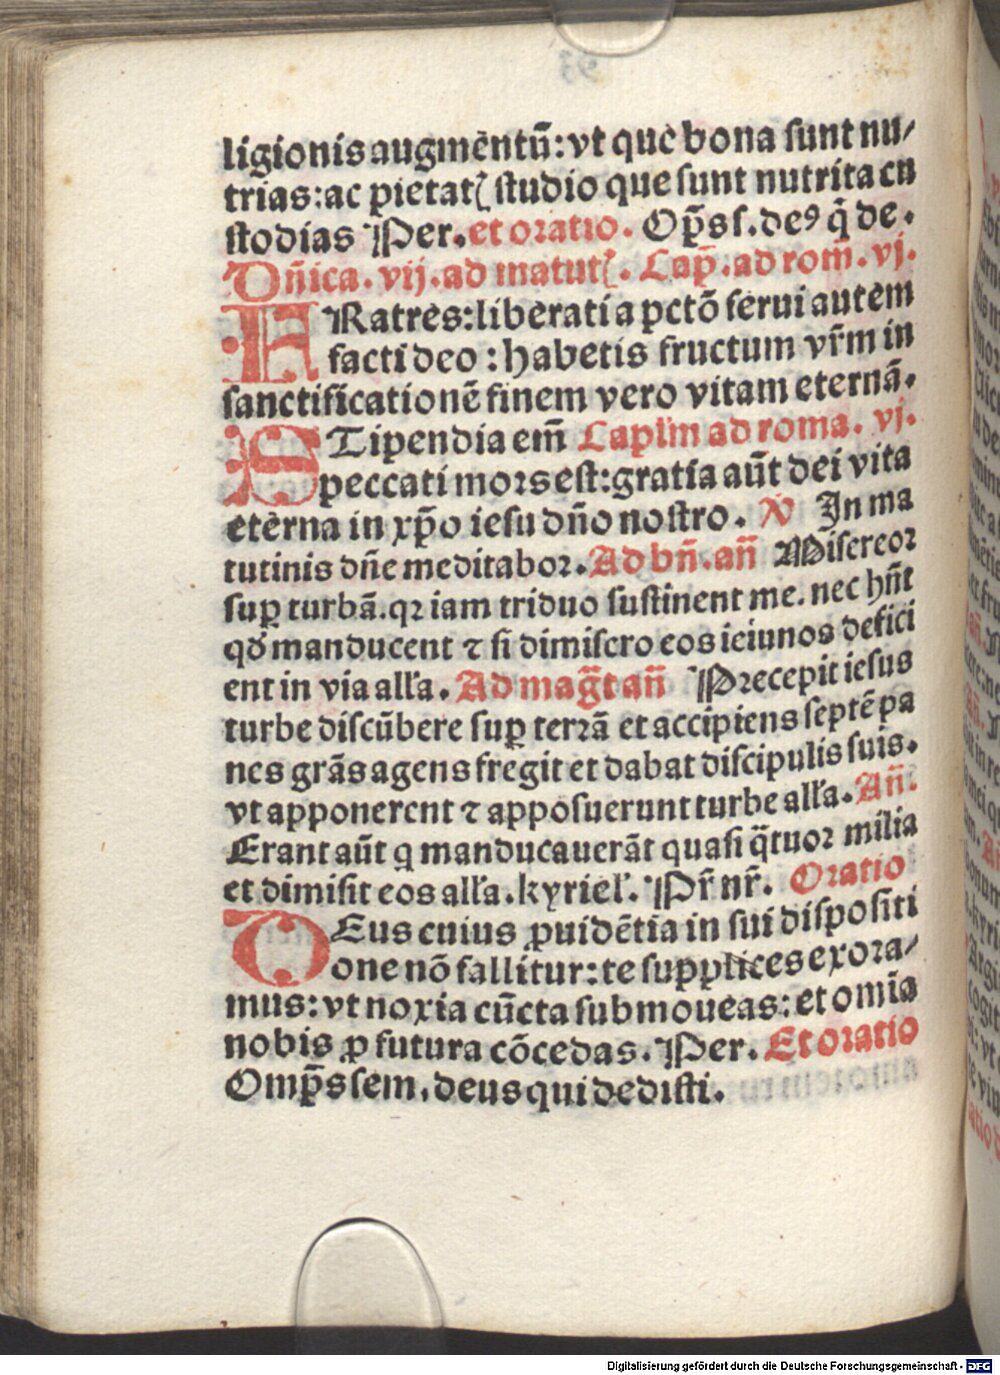 ligionis augmentū: vt que bona sunt nu/
trias: ac pietatꝭ studio que sunt nutrita cu
stodias Per. et oratio. Op̄s s. deꝰ q̇ de.
Dn̄ica. vij. ad matutꝭ. Cap̄. ad rom̄. vj.
FRatres: liberati a pctō serui autem
facti deo: habetis fructum vr̄m in
sanctificationē finem vero vitam eternā.
STipendia em̄ Capl'm ad roma. vj.
peccati mors est: gratia aūt dei vita
eterna in xp̄o iesu dn̄o nostro. ℟ In ma
tutinis dn̄e meditabor. Ad bn̄. an̄ Misereor
suꝑ turbā. qꝛ iam triduo sustinent me. nec hn̄t
qd̛ manducent ⁊ si dimisero eos ieiunos defici
ent in via all'a. Ad mag̅t an̄ Precepit iesus
turbe discūbere suꝑ terrā et accipiens septē pa
nes grās agens fregit et dabat discipulis suis.
vt apponerent ⁊ apposuerunt turbe all'a. An̄.
Erant aūt q̄ manducauerāt quasi q̄tuor milia
et dimisit eos all'a. kyriel'. Pr̄ nr̄. Oratio
DEus cuius ꝓuidētia in sui dispositi
one nō fallitur: te supplices exora/
mus: vt noxia cūcta submoueas: et omīa
nobis ꝓ futura cōcedas. Per. Et oratio
Omp̄s sem. deus qui dedisti.
Digitalisierung gefördert durch die Deutsche Forschungsgemeinschaft - DFG